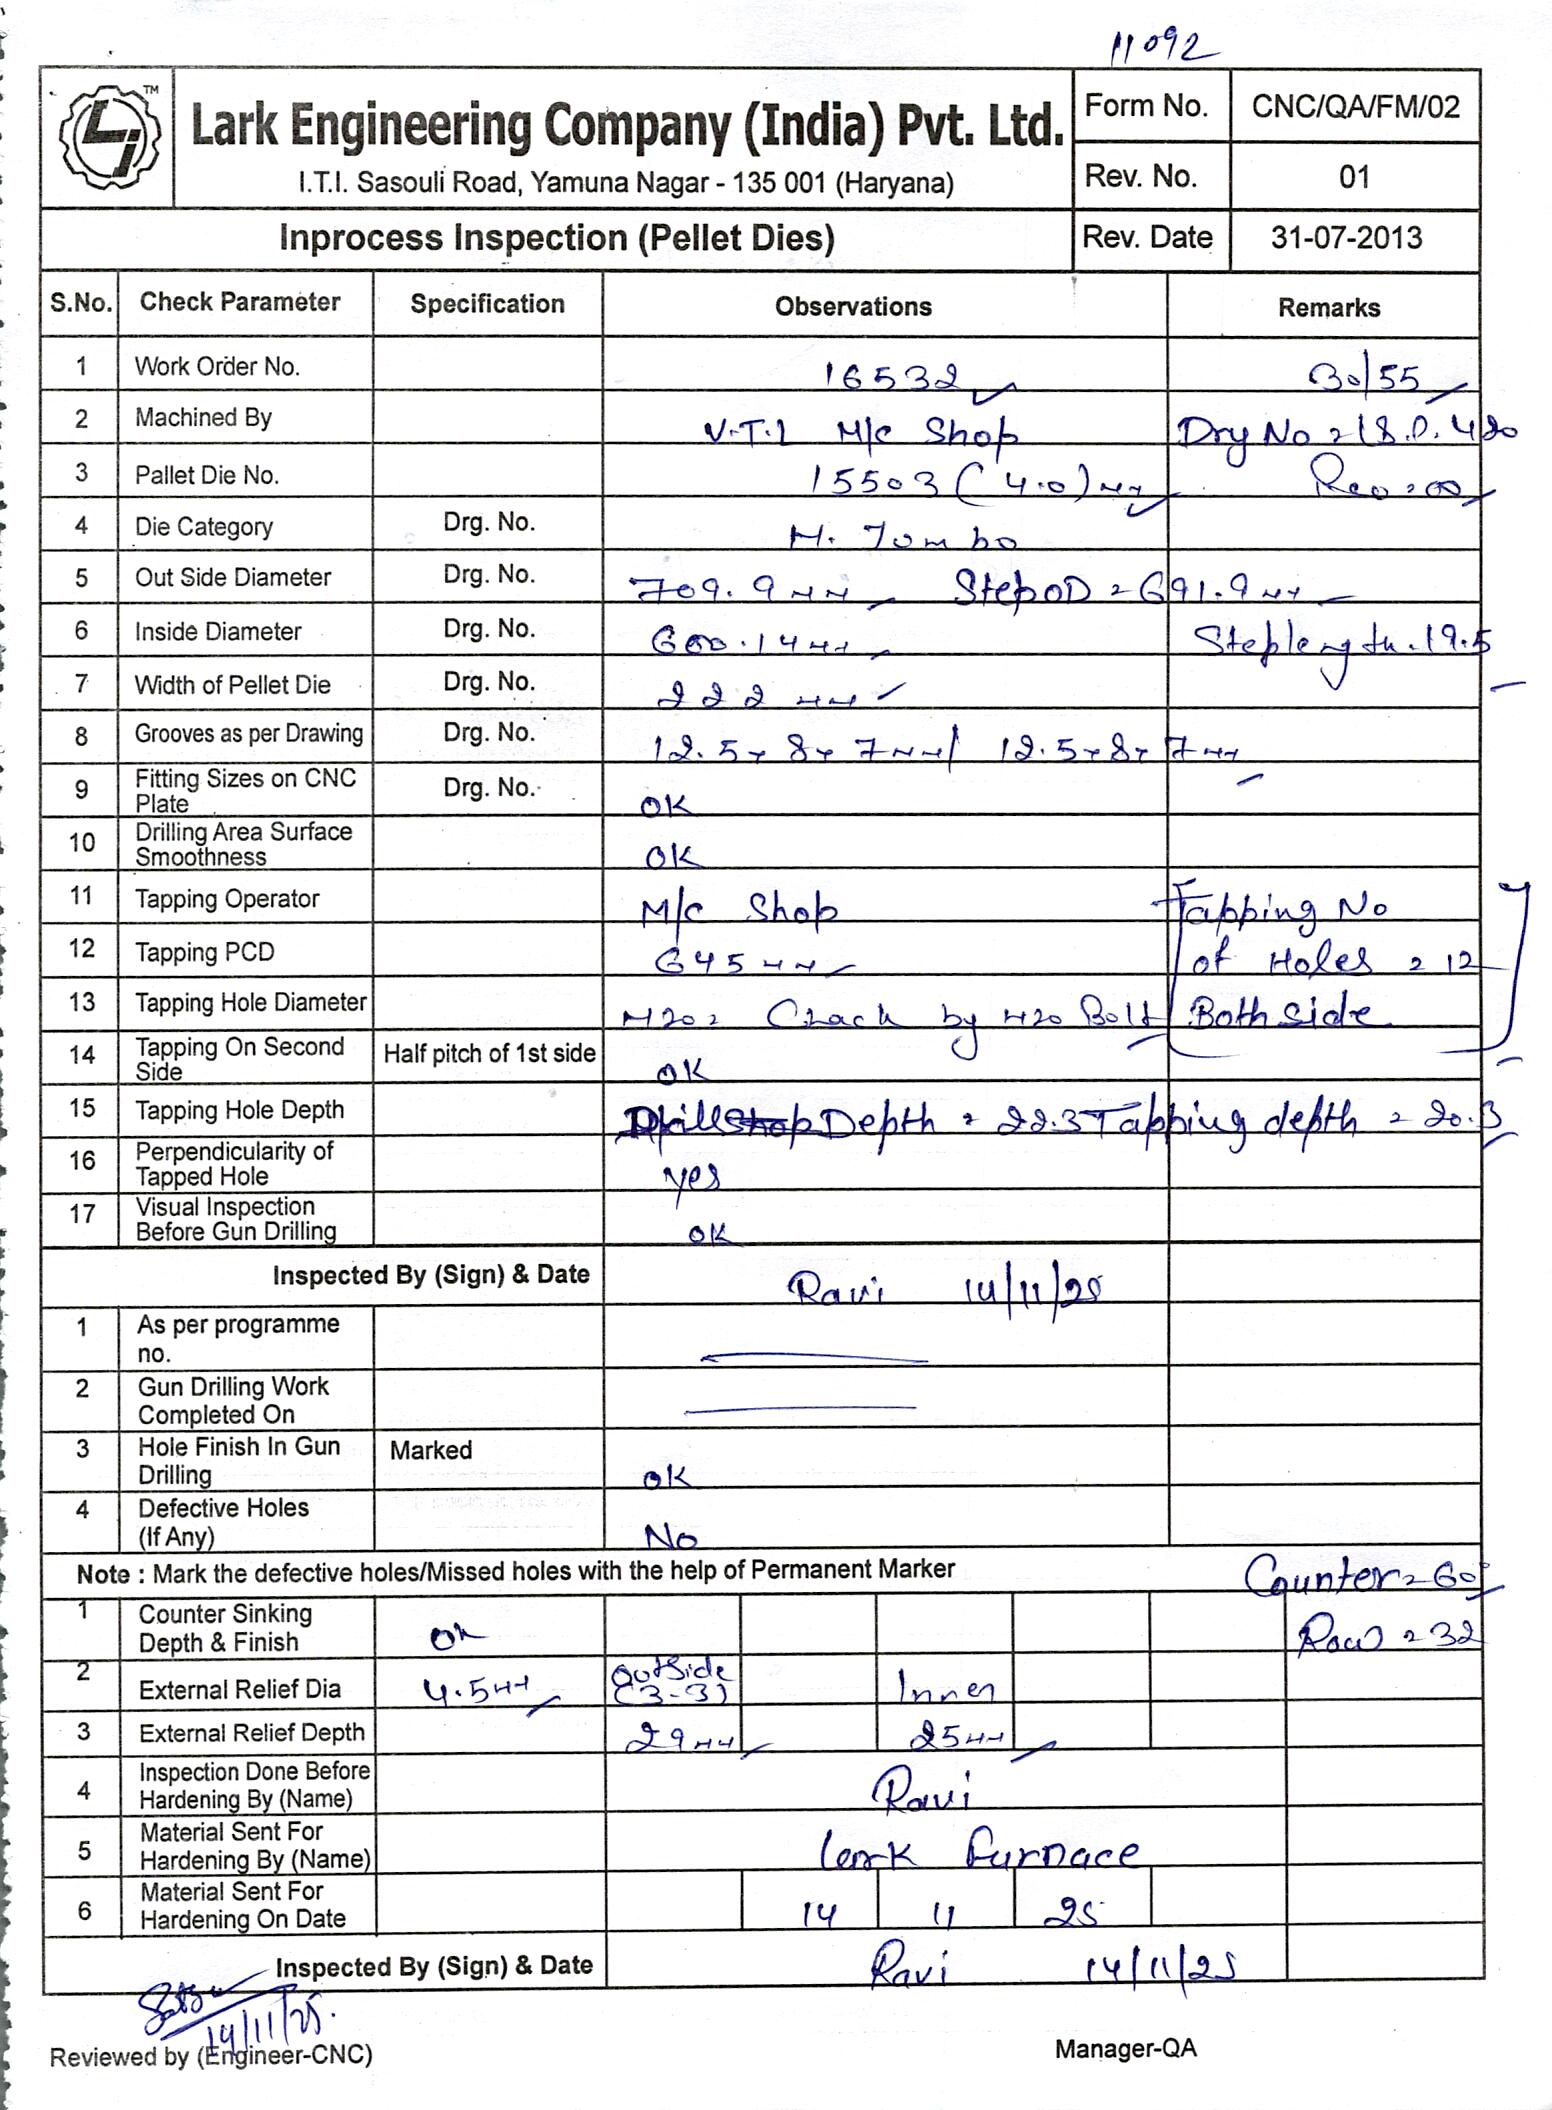 11092
TM
Lark Engineering Company (India) Pvt. Ltd.
I.T.I. Sasouli Road, Yamuna Nagar - 135 001 (Haryana)
Form No. CNC/QA/FM/02
Rev. No. 01
Inprocess Inspection (Pellet Dies) Rev. Date 31-07-2013
S.No. Check Parameter Specification Observations Remarks
1 Work Order No. 16532 30/55
2 Machined By V.T.L M/c Shop
3 Pallet Die No. 15503 (4.0) mm Rev = 00
4 Die Category Drg. No. M. Jumbo
5 Out Side Diameter Drg. No. 709.9 mm Step OD = 691.9 mm
6 Inside Diameter Drg. No. 600.14 mm Step length = 19.5
7 Width of Pellet Die Drg. No. 222 mm
8 Grooves as per Drawing Drg. No. 12.5 x 8 x 7 mm / 12.5 x 8 x 7 mm
9 Fitting Sizes on CNC
Plate Drg. No. OK
10 Drilling Area Surface
Smoothness OK
11 Tapping Operator M/c Shop Tapping No
12 Tapping PCD 645 mm of Holes = 12
13 Tapping Hole Diameter M20 = by M20 Bolt Both side
14 Tapping On Second
Side Half pitch of 1st side OK
15 Tapping Hole Depth Depth = 22.3 Tapping depth = 20.3
16 Perpendicularity of
Tapped Hole yes
17 Visual Inspection
Before Gun Drilling OK
Inspected By (Sign) & Date Ravi 14/11/25
1 As per programme
no.
2 Gun Drilling Work
Completed On
3 Hole Finish In Gun
Drilling Marked OK
4 Defective Holes
(If Any) No
Note : Mark the defective holes/Missed holes with the help of Permanent Marker Counter = 60°
1 Counter Sinking
Depth & Finish OK Row = 32
2 External Relief Dia 4.5 mm Outside (3-3) Inner
3 External Relief Depth 29 mm 25 mm
4 Inspection Done Before
Hardening By (Name) Ravi
5 Material Sent For
Hardening By (Name) Lark Furnace
6 Material Sent For
Hardening On Date 14 11 25
Inspected By (Sign) & Date Ravi 14/11/25
14/11/25.
Reviewed by (Engineer-CNC) Manager-QA